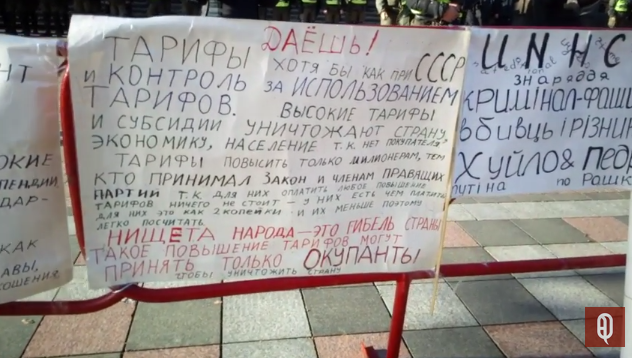 ДАЁШЬ!
ТАРИФЫ ХОТЯ БЫ КАК ПРИ СССР
И КОНТРОЛЬ ЗА ИСПОЛЬЗОВАНИЕМ
ТАРИФОВ. ВЫСОКИЕ ТАРИФЫ
И СУБСИДИИ УНИЧТОЖАЮТ СТРАНУ,
ЭКОНОМИКУ, НАСЕЛЕНИЕ Т.К. НЕТ ПОКУПАТЕЛЯ
ТАРИФЫ ПОВЫСИТЬ ТОЛЬКО МИЛИОНЕРАМ, ТЕМ
КТО ПРИНИМАЛ ЗАКОН И ЧЛЕНАМ ПРАВЯЩИХ
ПАРТИИ Т.К ДЛЯ НИХ ОПЛАТИТЬ ЛЮБОЕ ПОВЫШЕНИЕ
ТАРИФОВ НИЧЕГО НЕ СТОИТ - У НИХ ЕСТЬ ЧЕМ ПЛАТИТЬ
ДЛЯ НИХ ЭТО КАК 2 КОПЕЙКИ И ИХ МЕНЬШЕ ПОЭТОМУ
ЛЕГКО ПОСЧИТАТЬ
НИЩЕТА НАРОДА - ЭТО ГИБЕЛЬ СТРАНЫ
ТАКОЕ ПОВЫШЕНИЕ ТАРИФОВ МОГУТ
ПРИНЯТЬ ТОЛЬКО ОККУПАНТЫ
ЧТОБЫ УНИЧТОЖИТЬ СТРАНУ
UNHC
ЗНАРЯДДЯ
КРИМІНАЛ-ФАШИ
ВБИВЦЬ І РІЗНИК
ХУЙЛО & ПЕДР
ПУТІНА ПО РАШК